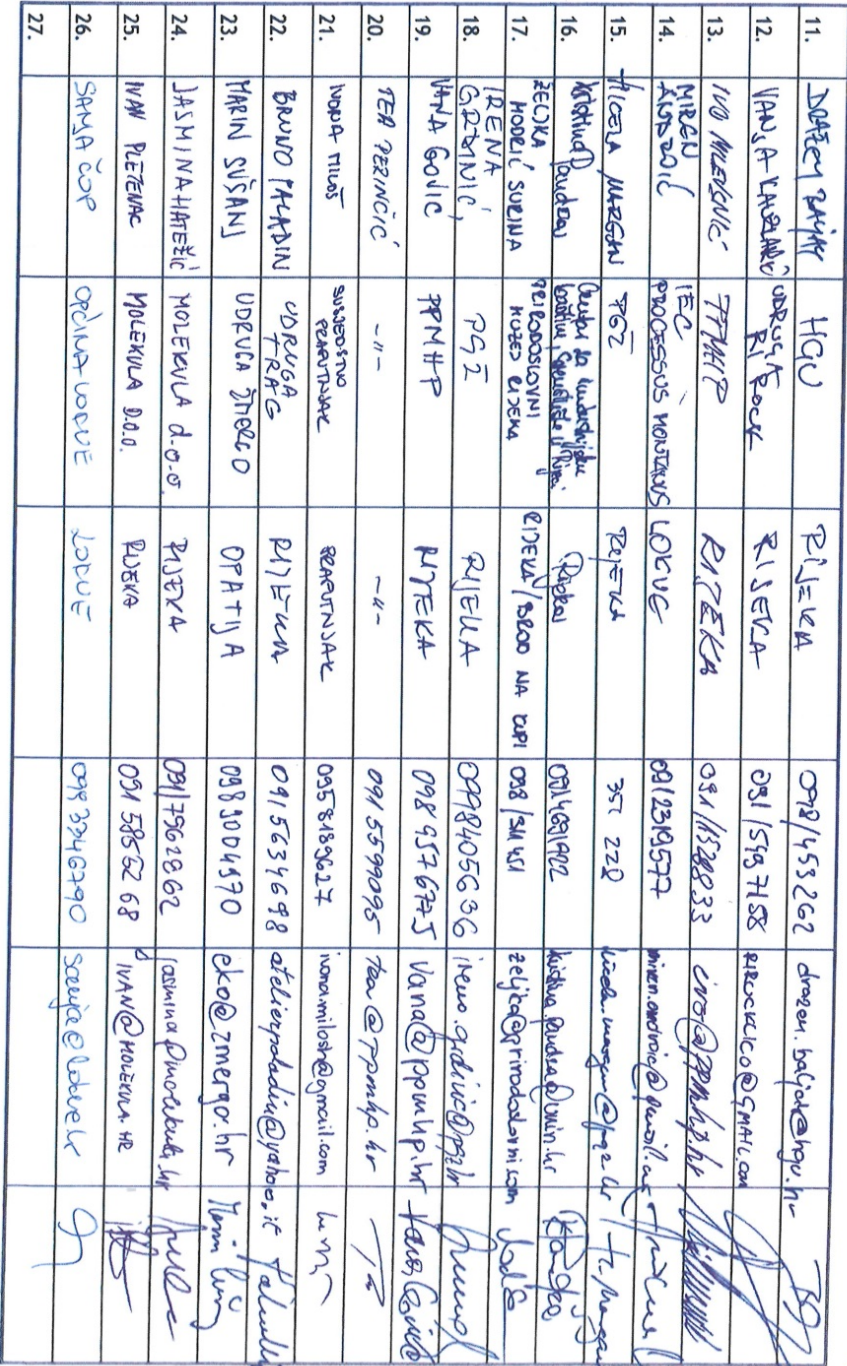 11. DRAŽEN BALJAK HGU RIJEKA 098/453262 drazen.baljak@hgu.hr
12. VANJA UDRUGA RI ROCK RIJEKA 091/5497158 RIROCKLICO@GMAIL.COM
13. IVO PPMHP RIJEKA 091/1528033 ivo@ppmhp.hr
14. MIREN ANDROIĆ IEC PROCESSUS MONTANUS LOKVE 091/2319577
15. MARGAN PGŽ RIJEKA 351 228
16. Kristina Pandza Centar za industrijsku baštinu, Sveučilište u Rijeci Rijeka 0914691902
17. ŽELJKA MODRIĆ SURINA PRIRODOSLOVNI MUZEJ RIJEKA RIJEKA/BROD NA KUPI 098/311451 zeljka@prirodoslovni.com
18. IRENA GRDINIĆ, PGŽ RIJEKA 0998405636 irena.grdinic@pgz.hr
19. VANA GOVIĆ PPMHP RIJEKA 0989576775 vana@ppmhp.hr Vana Gović
20. TEA PERINČIĆ -"- -"- 0915599095 tea@ppmhp.hr
21. IVONA MILOŠ SUSJEDSTVO PRAPUTNJAK PRAPUTNJAK 0958189627 ivona.milosh@gmail.com
22. BRUNO PALADIN UDRUGA TRAG RIJEKA 0915634698 atelierpaladin@yahoo.it
23. MARIN SUŠANJ UDRUGA ŽMERGO OPATIJA 0989004970 eko@zmergo.hr
24. JASMINA HATEŽIĆ MOLEKULA d.o.o. RIJEKA 091/7962862 jasmina@molekula.hr
25. IVAN PLETENAC MOLEKULA D.O.O. RIJEKA 091 5855268 IVAN@MOLEKULA.HR
26. SANJA ČOP OPĆINA LOKVE LOKVE 0983346790
27.